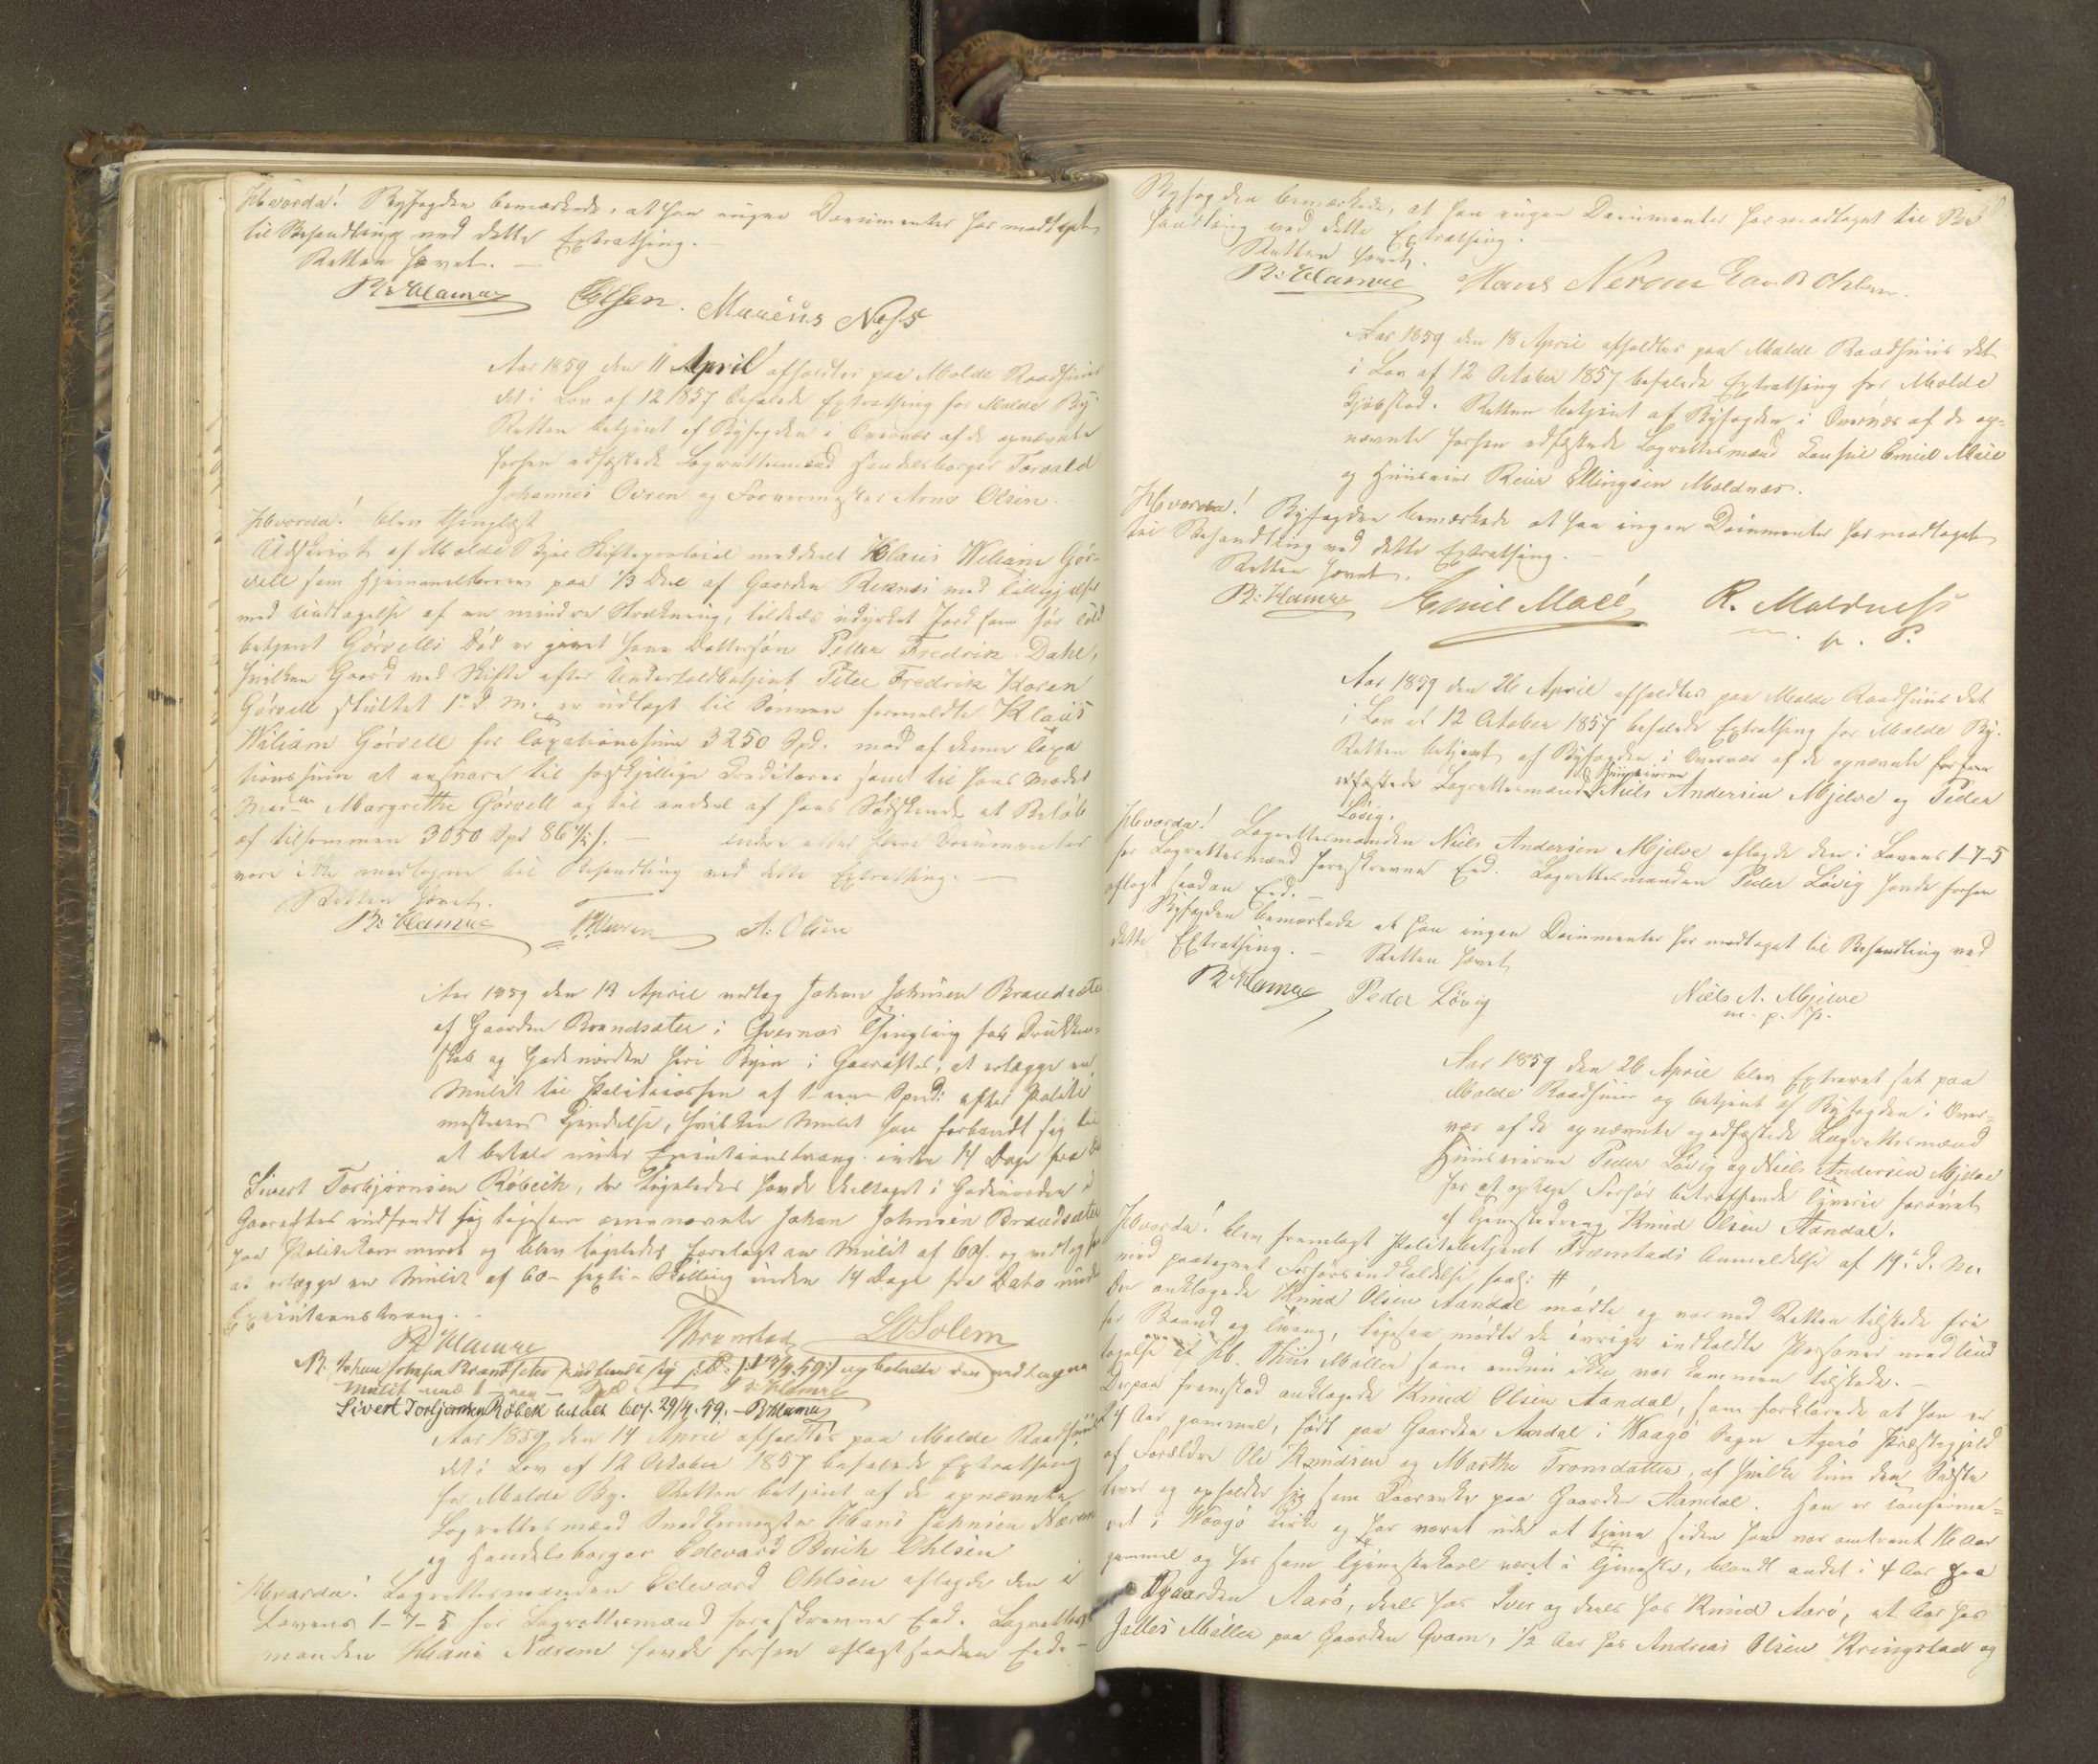 Hvorda! Byfogden bemærkede, at han ingen Documenter har modtaget
til Behandling ved dette Extrathing.
Retten hævet. —
B: Hamre Elsen. Marius Ness
Aar 1859 den 11 April afholdtes paa Molde Raadhuus
det i Lov af 12 1857 befalede Extrathing for Molde By
Retten betjent af Byfogden i Overvær af de opnævnte
forhen edfæstede Laugrettesmænd Handelsborger Torvald
Johannes Owren og Arnt Olsen.
Hvorda! blev thinglæst
Udskrivt af Molde Byes Skifteprotocol meddeelt Klaus Wiliam Gör-
vell som Hjemmelbrev paa 1/3 Deel af Gaarden Reknes med Tilliggelse
med Undtagelse af en mindre Strækning, tildeels udyrket Jord som før Told
betjent Görvells Död er givet hans Dattersön Petter Fredrik Dahl,
hvilken Gaard ved Skifte efter Undertoldbetjent Peter Fredrik Koren
Görvell sluttet 1ste d. M. er udlagt til Sönnen formeldte Klaus
Wiliam Görvell for Taxationssum 3250 Spd. mod af denne Taxa
tionssum at ansvare til forskjellige Creditorer samt til hans Moder
Margrethe Görvell og til endeel af hans Sødskende et Beløb
af tilsammen 3050 Spd 86 — andre eller flere Documenter
vare ikke modtagne til Behandling ved dette Extrathing. —
Retten hævet.
B: Hamre Owren A: Olsen
Aar 1859 den 13 April vedtog Johan Johnsen Brandsæter
af Gaarden Brandsæter i Qvernæs Thinglaug for Drukken-
skab og Gadeuorden her i Byen i Gaaraftes, at erlægge en
Mulct til Politikassen af 1 een Spd: efter Politi
mesterens Kjendelse, hvilken Mulct han forbandt sig til
at betale under Executionstvang inden 14 Dage fra D
Sivert Torbjørnsen Röbech, der ligeledes havde deeltaget i Gadeuorden i
Gaaraftes indfandt sig ligesom ovennævnte Johan Johnsen Brandsæter
paa Politikammeret og blev ligeledes forelagt en Mulct af 60s. og vedtog
at erlægge en Mulct af 60 – sexti – Skilling inden 14 Dage fra Dato under
Executionstvang. –
B Hamre Thronstad LO Solem
N. Johan Johnsen Brandsæter indfandt sig s: D: /: 13/4 59:/ og betalte den vedtagne
Mulct med 1 – een – Spd. B: Hamre
Sivert Torbjørnsen Röbek betalt 60s. 29/4. 59. – B Hamre
Aar 1859 den 14 April afholdtes paa Molde Raadhuus
det i Lov af 12 October 1857 befalede Extrathing
for Molde By. Retten betjent af de opnævnte
Lagrettesmænd Snedkermester Hans Johnsen Næren
og Handelsborger Edevard Buck Ohlsen
Hvorda! Lagrettesmanden Edevard Ohlsen aflagde den i
Lovens 1–7–5 for Lagrettesmænd foreskrevne Eed. Lagrettes
manden Hans Næren havde forhen aflagt saadan Eed. –
Byfogden bemærkede, at han ingen Documenter har modtaget til Be
handling ved dette Extrathing.
Retten hævet.
B: Hamre Hans Neren Edv. B Ohlsen.
Aar 1859 den 18 April afholdtes paa Molde Raadhuus det
i Lov af 12 October 1857 befalede Extrathing for Molde
Kjöbstad. Retten betjent af Byfogden i Overvær af de op-
nævnte forhen edfæstede Lagrettesmænd Consul Emiel Macé
og Huuseier Reier Ellingsen Moldnæs.
Hvorda! Byfogden bemærkede at han ingen Documenter har modtaget
til Behandling ved dette Extrathing. –
Retten hævet.
B: Hamre Emil Macé R. Moldness
m. p. P.
Aar 1859 den 26 April afholdtes paa Molde Raadhuus det
i Lov af 12 October 1857 befalede Extrathing for Molde By.
Retten betjent af Byfogden i Overvær af de opnævnte forhen
edfæstede Lagrettesmænd Huuseierne Niels Andersen Mjelve og Peder
Lövig.
Hvorda! Lagrettesmanden Niels Andersen Mjelve aflagde den i Lovens 1–7–5
for Lagrettesmænd foreskrevne Eed. Lagrettesmanden Peder Lövig havde forhen
aflagt saadan Eed. –
Byfogden bemærkede at han ingen Documenter har modtaget til Behandling ved
dette Extrathing. – Retten hævet
B Hamre Peder Lövig Niels A. Mjelve
m. p. P.
Aar 1859 den 26 April blev Extraret sat paa
Molde Raadhuus og betjent af Byfogden i Over-
vær af de opnævnte og edfæstede Lagrettesmænd
Huuseierne Peder Lövig og Niels Andersen Mjelve
for at optage Forhör betræffende Tyverie forövet
af Tjenestedreng Knud Olsen Aandal.
Hvorda! blev fremlagt Politibetjent Trønstads Anmeldelse af 19de d. M.
med paategnet Forhörsindkaldelse saal: #
Den anklagede Knud Olsen Aandal mödte og var ved Retten tilstede fri
for Baand og Tvang, ligesaa mödte de övrige indkaldte Personer med Und
tagelse af Hr. Thiis Möller som endnu ikke var kommen tilstede. –
Derpaa fremstod anklagede Knud Olsen Aandal, som forklarede at han er
24 Aar gammel, född paa Gaarden Aandal i Waagö Sogn Agerö Præstegjeld
af Forældre Ole Knudsen og Marthe Tronsdatter, af hvilke kun den Sidste
lever og opholder sig som Kaarenke paa Gaarden Aandal. Han er confirme-
ret i Waagö Kirke og har været ude at tjene siden han var omtrent 16 Aar
gammel og har som Tjenestekarl været i Tjeneste, blandt andet i 4 Aar paa
Gaarden Aarö, deels hos Iver og deels hos Knud Aarö, et Aar hos
Jalles Möller paa Gaarden Qvam, 1/2 Aar hos Andreas Olsen Kringstad og